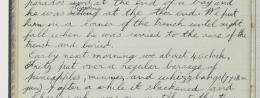 parados and at the end of a bay and
he was sitting at the other end. We put
him in a corner of the trench until night
fall when he was carried to the rear of the
trench and buried.
Early next morning we about 4 o'clock,
Fritz put over a regular barrage of
pineapples, minnies, and whizzbangs (77 m m
gun) & after a while it slackened and